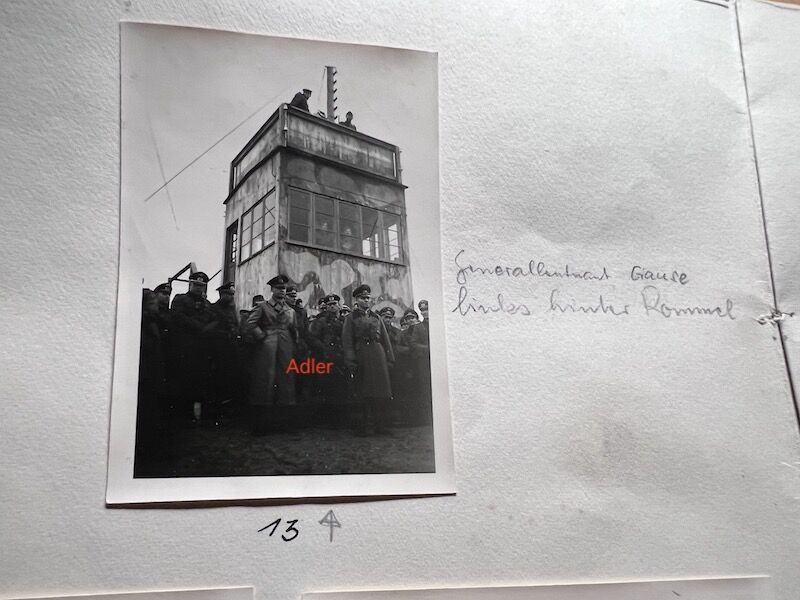 Adler
Generalleutnant Gause
links hinter Rommel
13